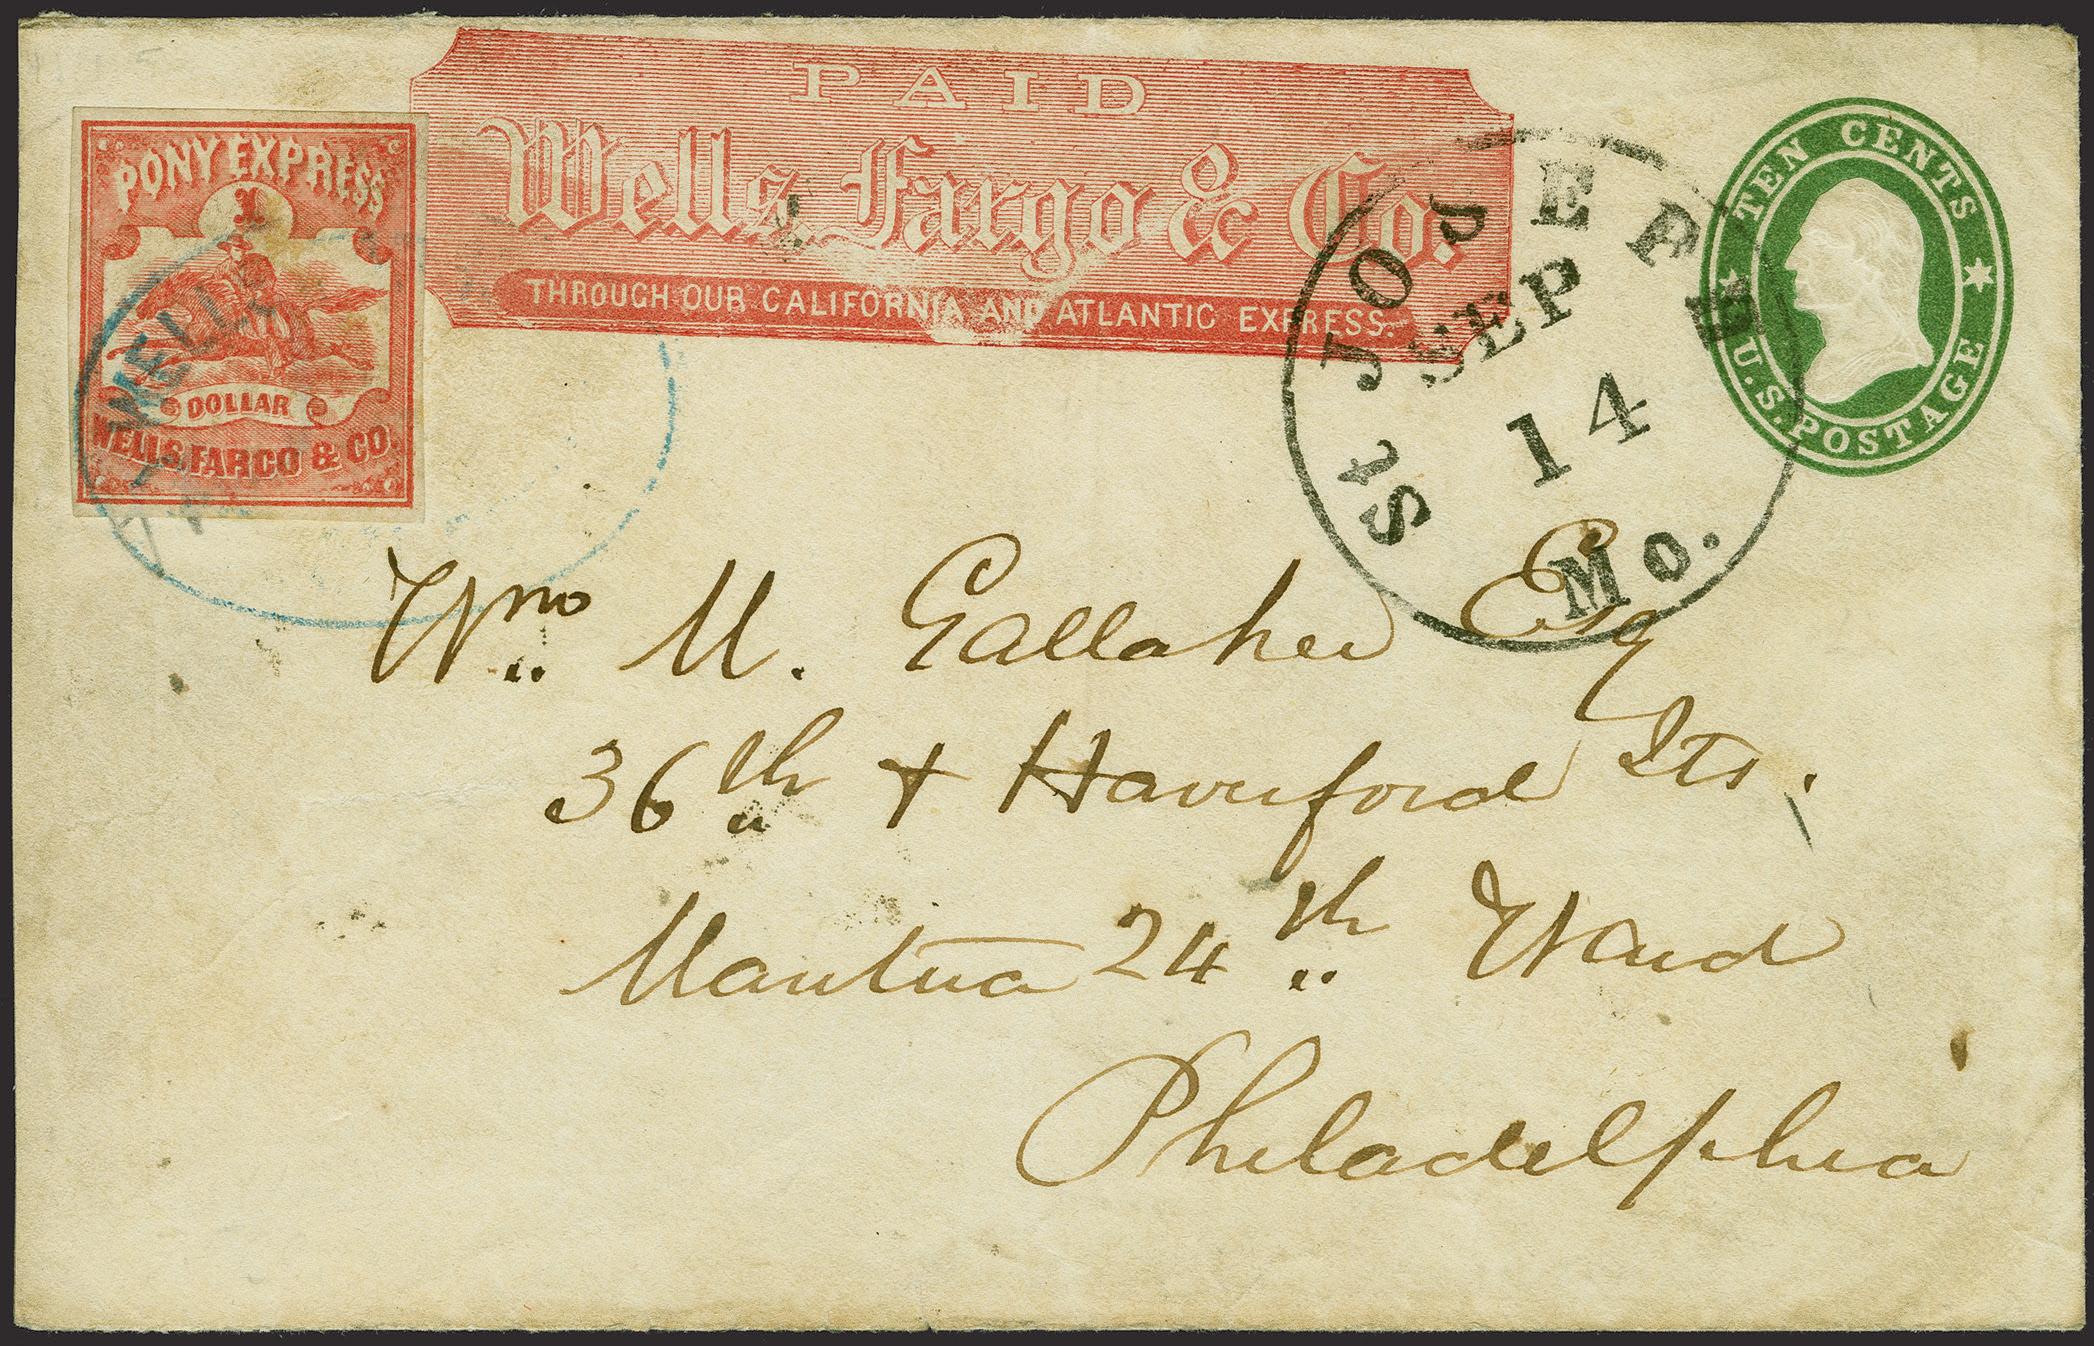 PAID
Wells, Fargo & Co.
THROUGH OUR CALIFORNIA AND ATLANTIC EXPRESS.
PONY EXPRESS
1
DOLLAR
WELLS, FARGO & CO.
WELLS
St JOSEPH
SEP
14
Mo.
TEN CENTS
U.S. POSTAGE
Wm M. Gallaher Esq
36th + Haverford Sts.
Mantua 24th Ward
Philadelphia